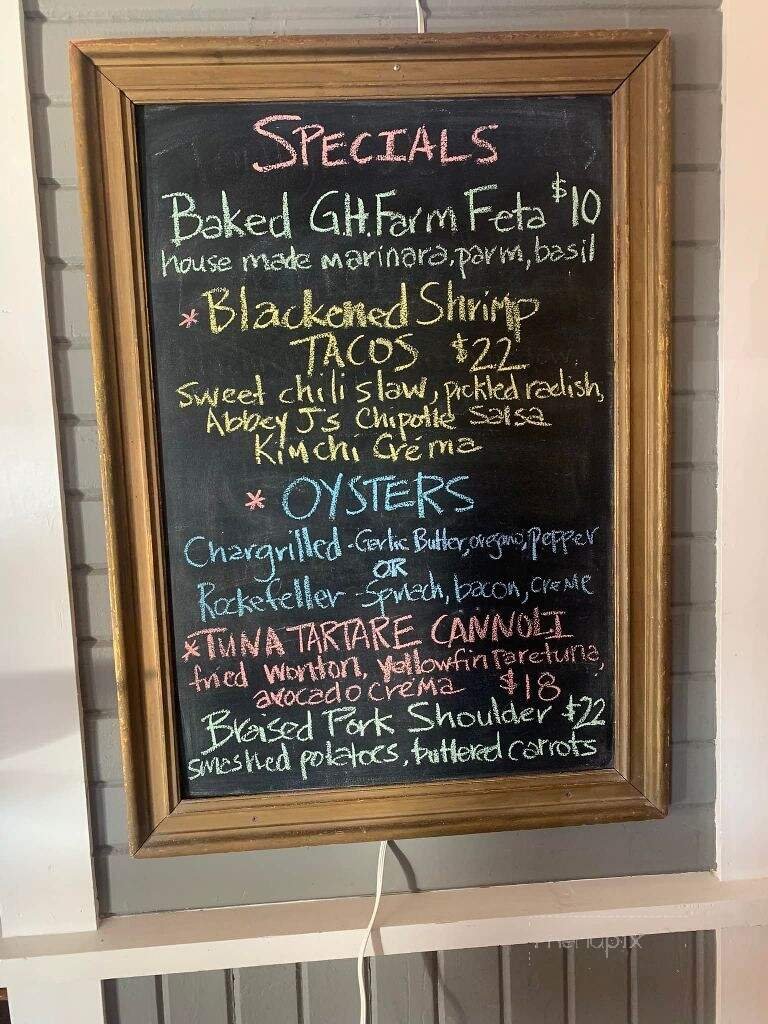 SPECIALS
Baked G.H. Farm Feta $10
house made marinara, parm, basil
* Blackened Shrimp
TACOS $22
sweet chili slaw, pickled radish,
Abbey J's Chipotle Salsa
Kimchi Créma
* OYSTERS
Chargrilled - Garlic Butter, oregano, pepper
OR
Rockefeller - Spinach, bacon, creme
*TUNA TARTARE CANNOLI
fried wonton, yellowfin rare tuna,
avocado crema $18
Braised Pork Shoulder $22
smashed potatoes, buttered carrots
menupix